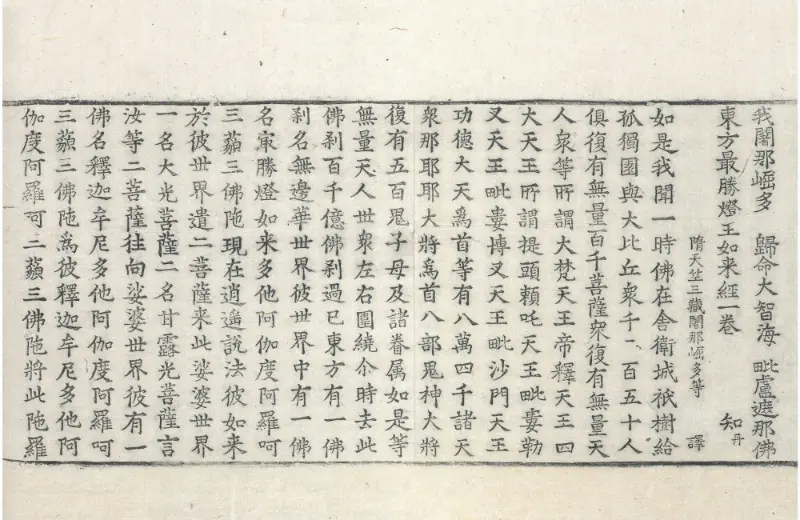 我闍那崛多 歸命大智海 毗盧遮那佛
東方最勝燈王如来經一卷 知 丹
隋天竺三藏闍那崛多等 譯
如是我聞一時佛在舍衛城祇樹給
孤獨園與大比丘衆千二百五十人
俱復有無量百千菩薩衆復有無量天
人衆等所謂大梵天王帝釋天王四
大天王所謂提頭頼吒天王毗婁勒
叉天王毗婁博叉天王毗沙門天王
功德大天爲首等有八萬四千諸天
衆那耶耶大將爲首八部鬼神大將
復有五百鬼子母及諸眷属如是等
無量天人世衆左右圍繞尒時去此
佛刹百千億佛刹過已東方有一佛
刹名無邊華世界彼世界中有一佛
名㝡勝燈如来多他阿伽度阿羅呵
三藐三佛陁現在逍遥說法彼如来
於彼世界遣二菩薩来此娑婆世界
一名大光菩薩二名甘露光菩薩言
汝等二菩薩往向娑婆世界彼有一
佛名釋迦牟尼多他阿伽度阿羅呵
三藐三佛陁爲彼釋迦牟尼多他阿
伽度阿羅呵三藐三佛陁將此陁羅